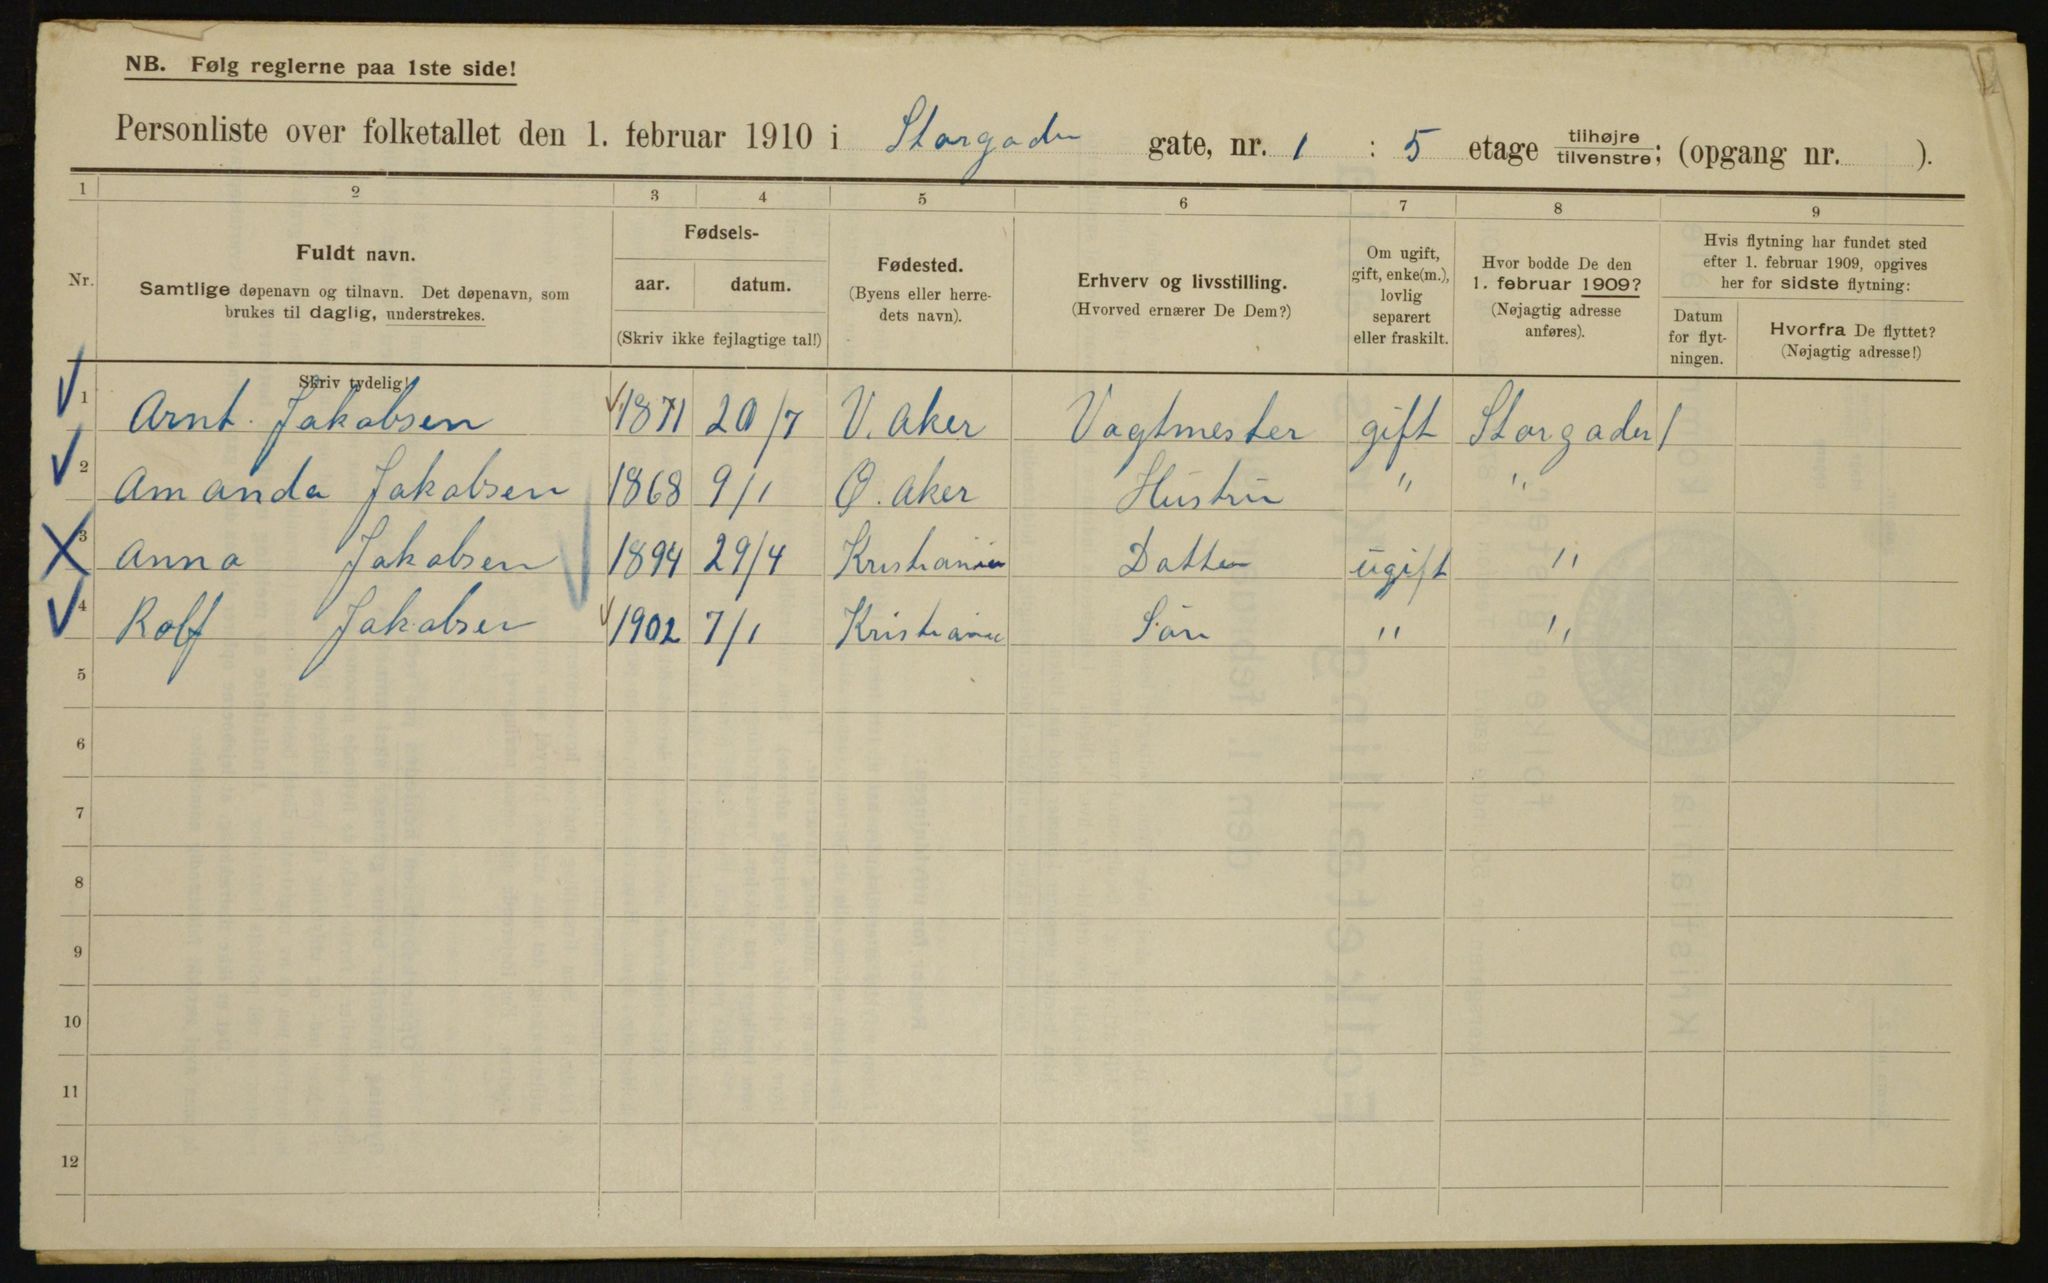 NB. Følg reglerne paa 1ste side!
Personliste over folketallet den 1. februar 1910 i Storgaden gate, nr. 1 : 5 etage tilhøjre/tilvenstre; (opgang nr. ).
1 2 3 4 5 6 7 8 9
Nr.
Fuldt navn.
Samtlige døpenavn og tilnavn. Det døpenavn, som
brukes til daglig, understrekes.
Skriv tydelig!
Fødsels-
aar. datum.
(Skriv ikke fejlagtige tal!)
Fødested.
(Byens eller herre-
dets navn).
Erhverv og livsstilling.
(Hvorved ernærer De Dem?)
Om ugift,
gift, enke(m.),
lovlig
separert
eller fraskilt.
Hvor bodde De den
1. februar 1909?
(Nøjagtig adresse
anføres).
Hvis flytning har fundet sted
efter 1. februar 1909, opgives
her for sidste flytning:
Datum
for flyt-
ningen.
Hvorfra De flyttet?
(Nøjagtig adresse!)
1 Arnt Jakobsen 1871 20/7 V. Aker Vagtmester gift Storgaden 1
2 Amanda Jakobsen 1868 9/1 Ø. Aker Hustru " "
3 Anna Jakobsen 1894 29/4 Kristiania Datter ugift "
4 Rolf Jakobsen 1902 7/1 Kristiania Søn " "
5
6
7
8
9
10
11
12